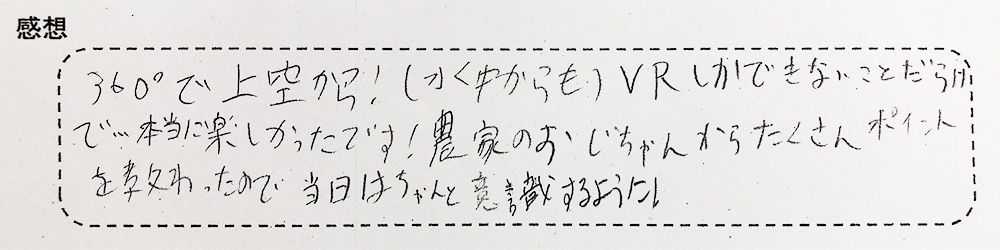 感想
360°で上空から！(水中からも)VRしかできないことだらけ
で…本当に楽しかったです！農家のおじちゃんからたくさんポイント
を教わったので当日はちゃんと意識するように!